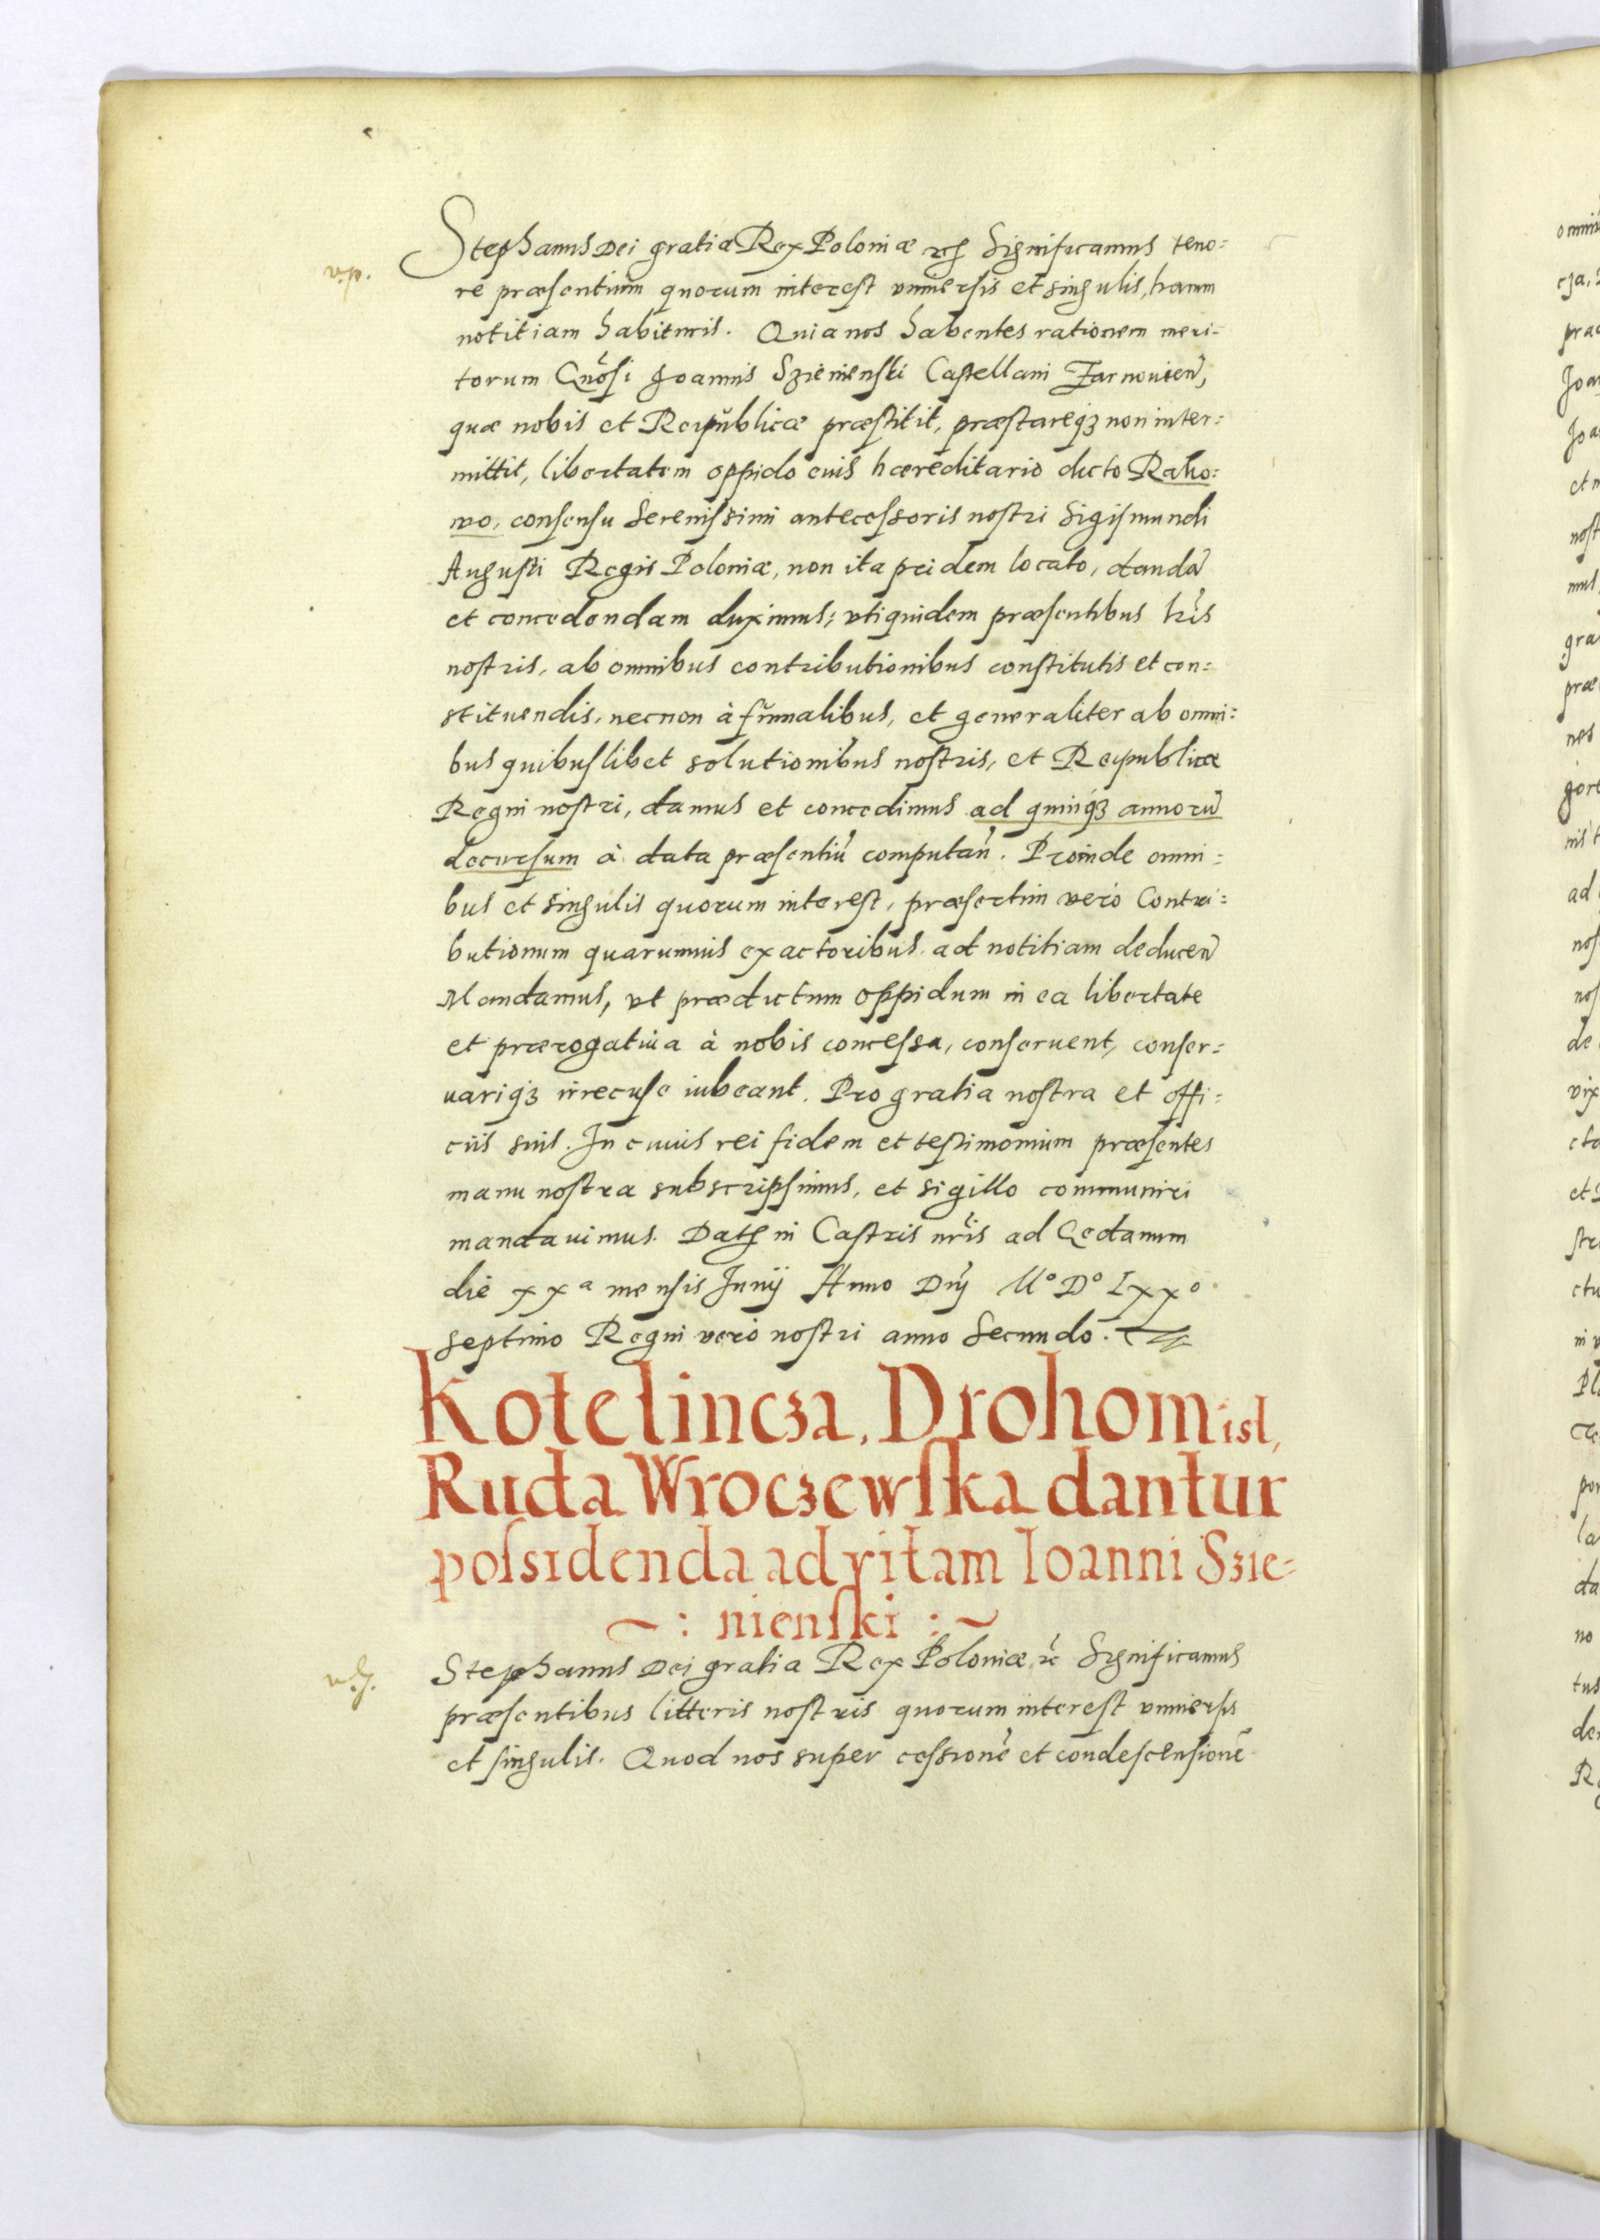 Stephanus Dei gratia Rex Poloniæ etc Significamus teno=
v.p.
re præsentium quorum interest vniuersis et singulis, harum
notitiam habituris. Quia nos habentes rationem meri-
torum Gnosi Joannis Szienienski Castellani Zarnouien̄,
quæ nobis et Reipublicæ præstitit, præstareqȝ non inter=
mittit, libertatem oppido euis hæreditario dicto Rako=
wo, consensu Serenissimi antecessoris nostri Sigismundi
Augusti Regis Poloniæ, non ita pridem locato, dandā
et concedendam duximus; vti quidem præsentibus lris
nostris, ab omnibus contributionibus constitutis et con=
stituendis, necnon à fumalibus, et generaliter ab omni=
bus quibuslibet solutionibus nostris, et Reipublicæ
Regni nostri, damus et concedimus ad quinqȝ annorū
decursum à data præsentiū computan̄. Proinde omni=
bus et singulis quorum interest, præsertim vero Contri=
butionum quarumuis exactoribus ad notitiam deducen̄
Mandamus, vt prædictum oppidum in ea libertate
et prærogatiua à nobis concessa, conseruent, conser=
uariqȝ irrecuse iubeant. Pro gratia nostra et offi=
ciis suis. In cuius rei fidem et testimonium præsentes
manu nostra subscripsimus, et sigillo communiri
mandauimus. Dat in Castris nris ad Gedanum
die xxª mensis Junij Anno Dnj Mº Dº Lxxº
septimo Regni vero nostri anno Secundo.
Kotelincza, Drohomisl,
Ruda Wroczewska dantur
possidenda ad vitam Ioanni Szie=
~ : nienski : ~
Stephanus Dei gratia Rex Poloniæ, etc Significamus
præsentibus litteris nostris quorum interest vniuersis
et singulis. Quod nos super cessionē et condescensionē